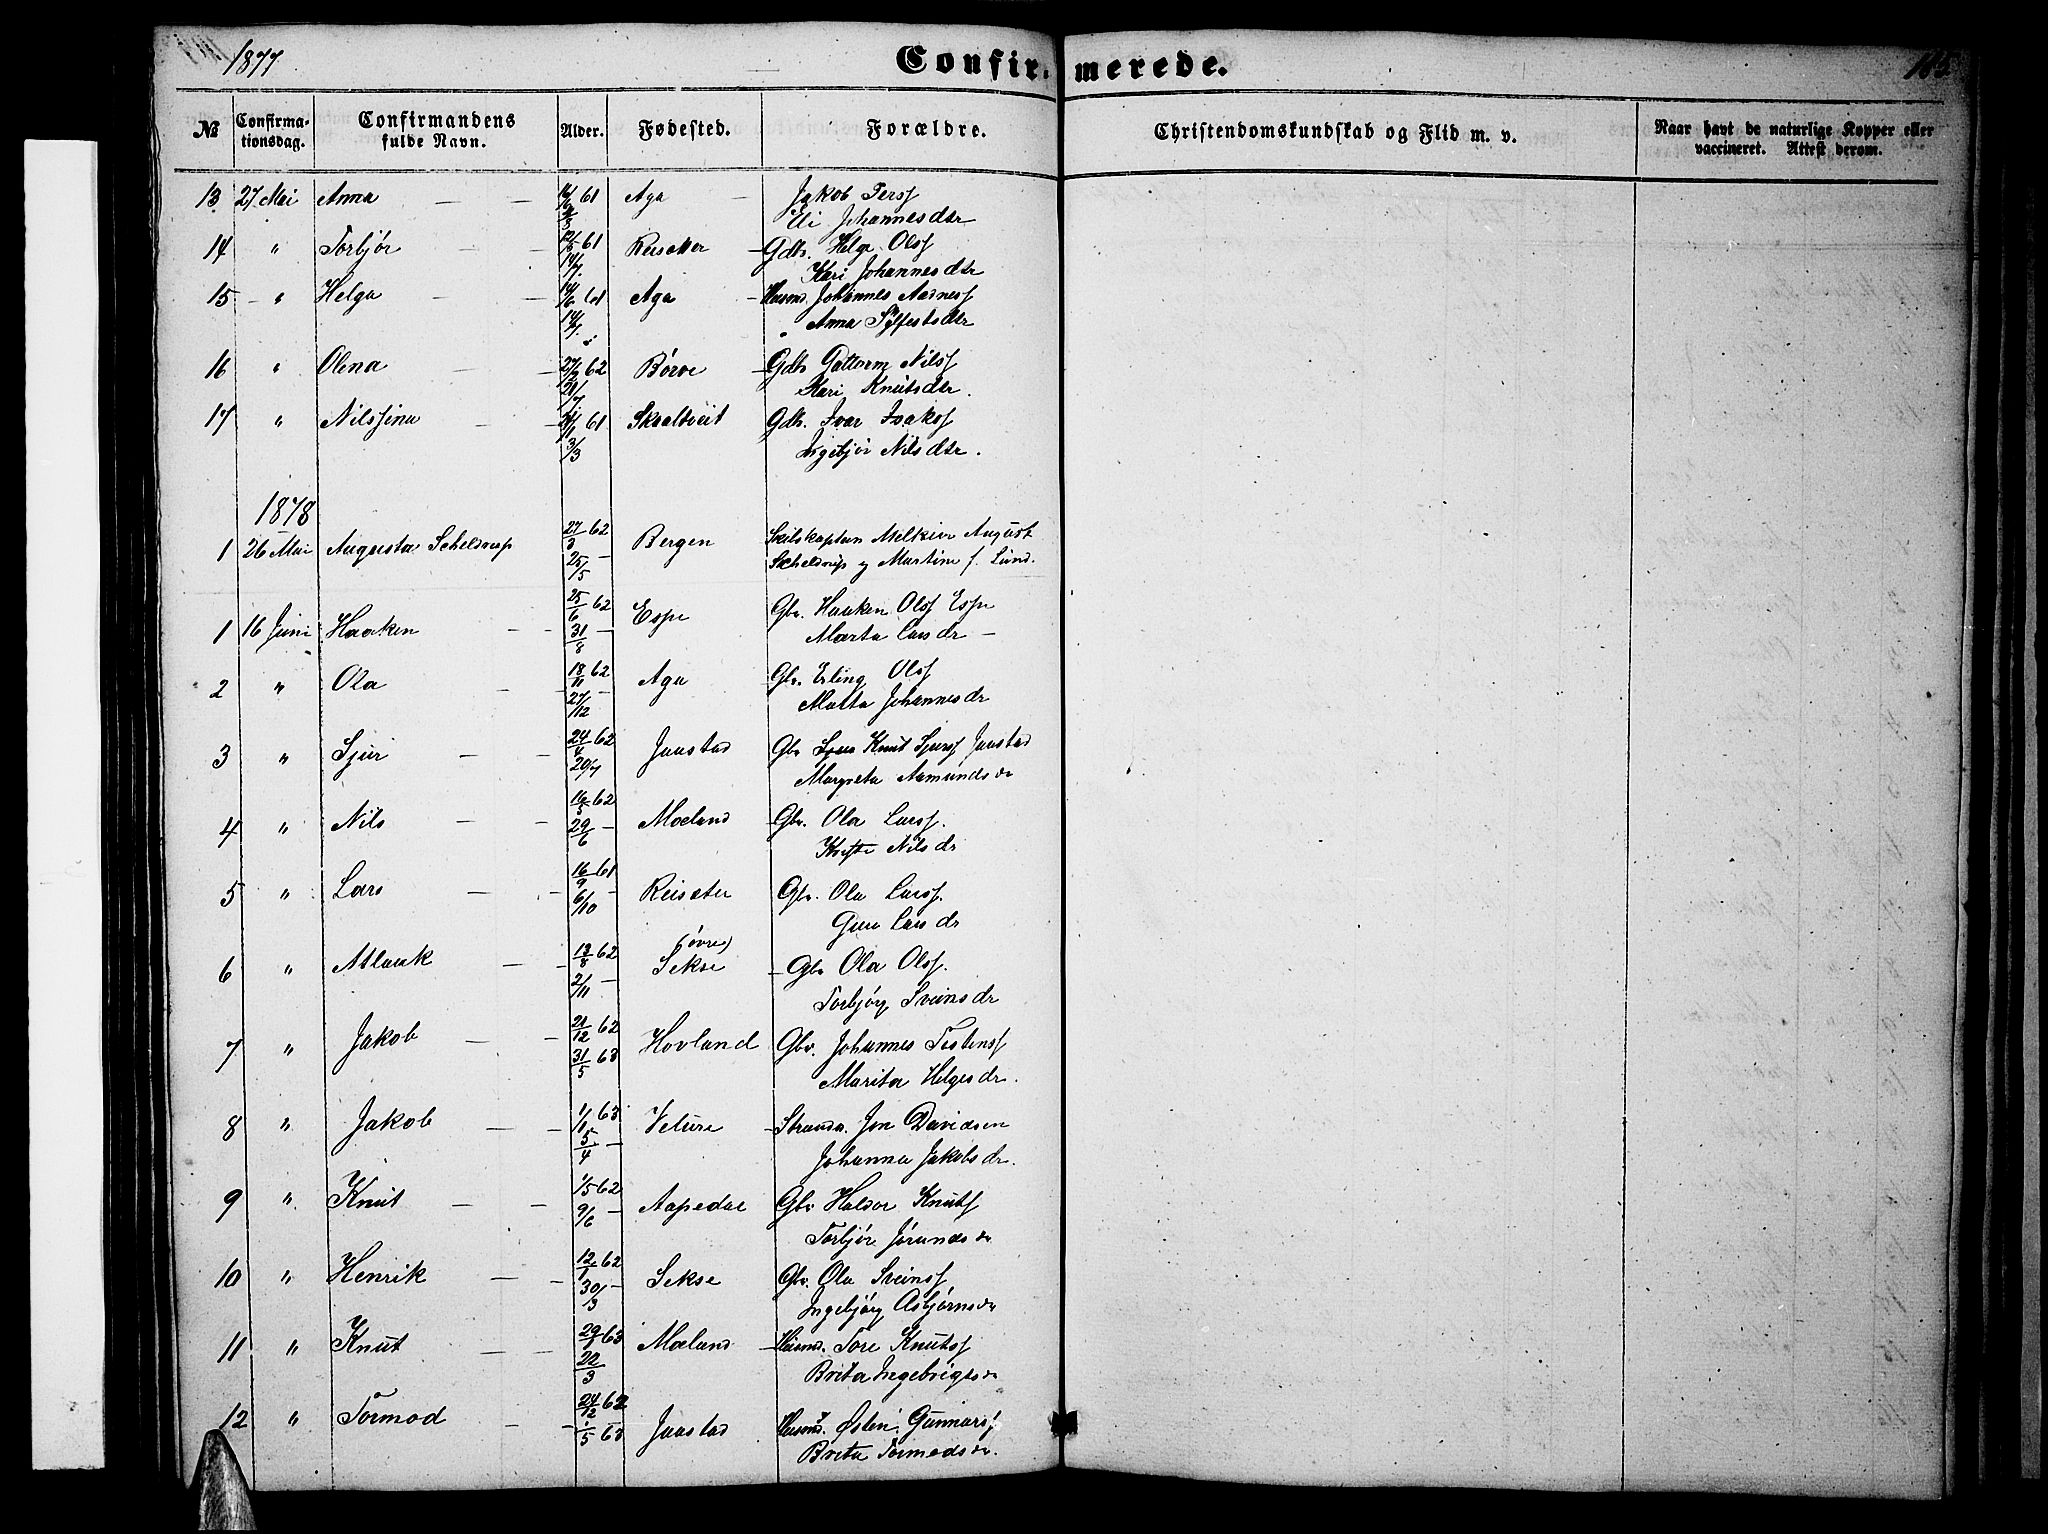 1877
Confirmerede.
№
Confirmationsdag.
Confirmandens fulde Navn.
Alder.
Fødested.
Forældre.
Christendomskundskab og Flid m. v.
Naar havt de naturlige Kopper eller vaccineret. Attest derom.
13 27 Mai Anna — — 61 Aga — Jakob Pers
Eli Johannesdtr
14 " Torbjør — — 61 Reisæter — Gdb. Helge Ols
14/7 Kari Johannesdtr
15 — " Helga — — 14/6 61 Aga — Husmd. Johannes Aadnes
14/7 " Anna Sylfestsdtr
16 " Olena — — 62 Børve — Gdb Guttorm Nils
Kari Knutsdtr.
17 " Nilssina — — 61 Skraltveit Gdb. Ivar Isaks
3/3 Ingebjør Nilsdtr.
1878
1 26 Mai Augusta Scheldrup 27/3 62 Bergen Skibskaptein Melkior August
25/5 Scheldrup og Martine f. Lund.
1 16 Juni Haaken — — 25/6 62 Espe Gbr. Haaken Ols Espe
31/8 — Marta Larsdr —
2 " Ola — — 18/11 62 Aga Gbr. Erling Ols
27/12 — Marta Johannesdr
3 " Sjur — — 24/4 62 Jaastad Gbr Knut Sjurs Jaastad
20/7 Margreta Aamundsdr
4 " Nils — — 16/5 62 Mæland Gbr. Ola Lars.
29/6 — Kristi Nilsdr
5 " Lars — — 16/9 61 Reisæter Gbr. Ola Lars.
6/10 — Guro Larsdr
6 " Aslauk — — 13/8 62 (øvre) Sekse — Gbr Ola Ols.
2/11 — Torbjørg Sveinsdr
7 " Jakob — — 21/12 62 Hovland Gbr. Johannes Tostens
31/5 63 Marita Helgesdr.
8 " Jakob — — 1/1 63 Velure — Strands. Jon Davidsen
5/4 — Johanna Jakobsdr.
9 " Knut — — 62 Aapedal Gbr Haldor Knuts
9/6 — Torbjør Jørundsdr
10 " Henrik — — 12/1 62 Sekse Gbr. Ola Sveins
30/3 — Ingebjørg Asbjørnsdr
11 " Knut — — 29/1 63 Mæland — Husmd. Tore Knuts
22/3 Brita Ingebrigtsdr
12 " Tormod — — 24/12 62 Jaastad Husmd. Østen Gunnars
/5 63 Brita Tormodsdr.